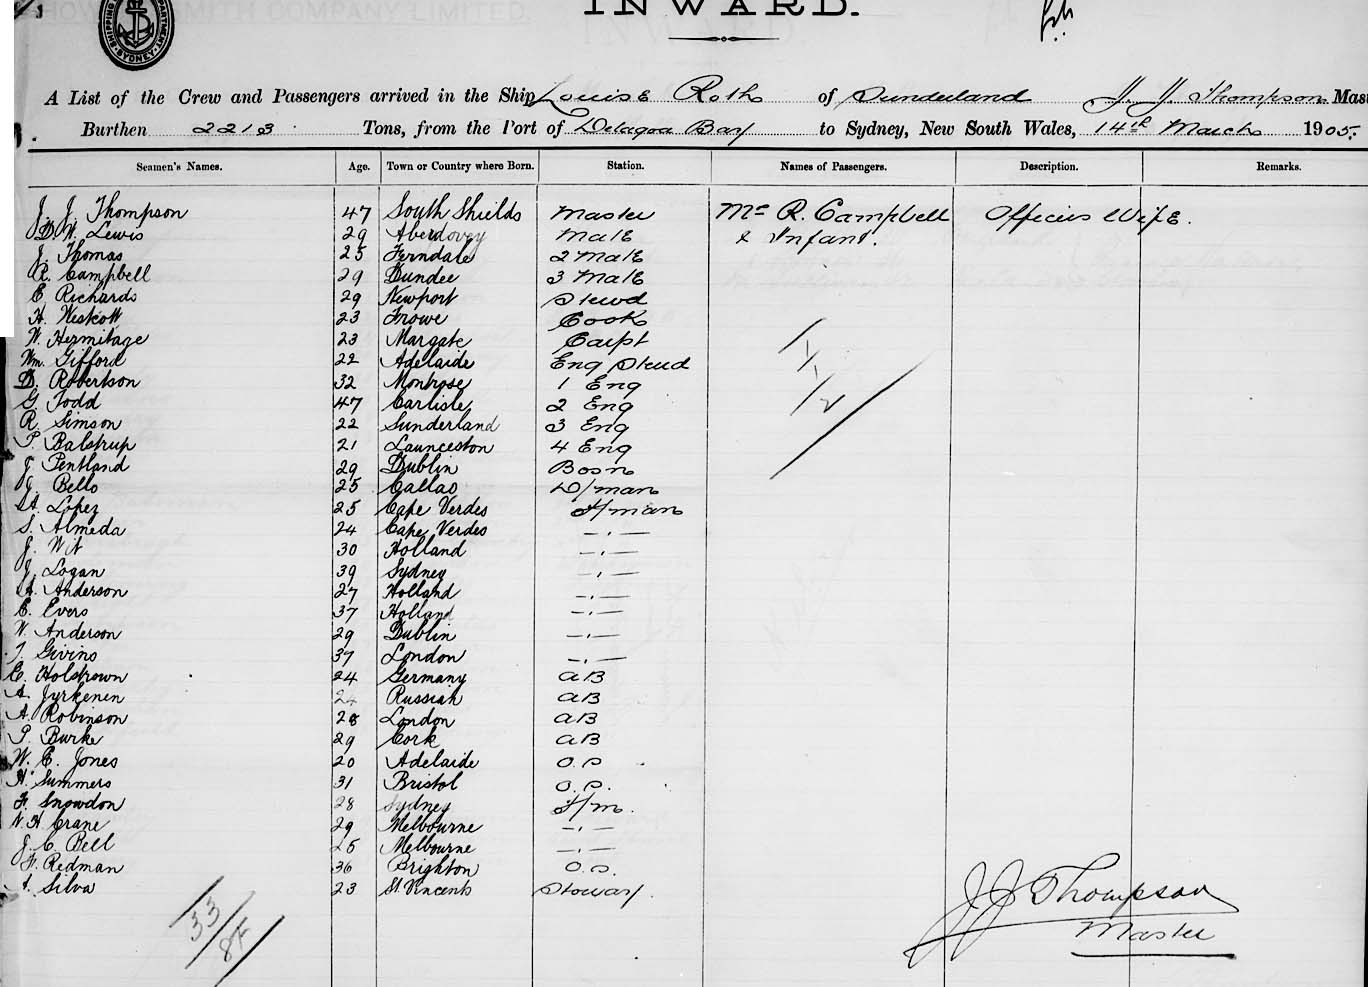 INWARD.
A List of the Crew and Passengers arrived in the Ship Louise Roth of Sunderland J. J. Thompson Mast
Burthen 2213 Tons, from the Port of Delagoa Bay to Sydney, New South Wales, 14th March 1905.
Seamen's Names. Age. Town or Country where Born. Station. Names of Passengers. Description. Remarks.
J. J. Thompson 47 South Shields Master Mrs R. Campbell Officers Wife.
D. W. Lewis 29 Aberdovey Mate & Infant.
J. Thomas 25 Ferndale 2 Mate
R. Campbell 29 Dundee 3 Mate
E. Richards 29 Newport Stewd
H. Westcott 23 Frowe Cook
W. Hermitage 23 Margate Carpt
Wm. Gifford 22 Adelaide Eng Stewd
D. Robertson 32 Montrose 1 Eng
G. Todd 47 Carlisle 2 Eng
R. Simson 22 Sunderland 3 Eng
P. Balstrup 21 Launceston 4 Eng
J. Pentland 29 Dublin Bosn
J. Bello 25 Callao D/man
A. Lopez 25 Cape Verdes F/man
S. Almeda 24 Cape Verdes —,—
J. Wit 30 Holland —,—
J. Logan 39 Sydney —,—
A. Anderson 27 Holland —,—
C. Evers 37 Holland —,—
W. Anderson 29 Dublin —,—
T. Givins 37 London —,—
C. Holstrown 24 Germany AB
A. Jyrkenen 24 Russian AB
A. Robinson 28 London AB
P. Burke 29 Cork AB
W. E. Jones 20 Adelaide O.S
H. Summers 31 Bristol O.S.
F. Snowdon 28 Sydney F/m.
W. H. Crane 29 Melbourne —,—
J. C. Bell 25 Melbourne —,—
F. Redman 36 Brighton O.S.
A. Silva 23 St. Vincents Stoway.
33
J J Thompson
Master